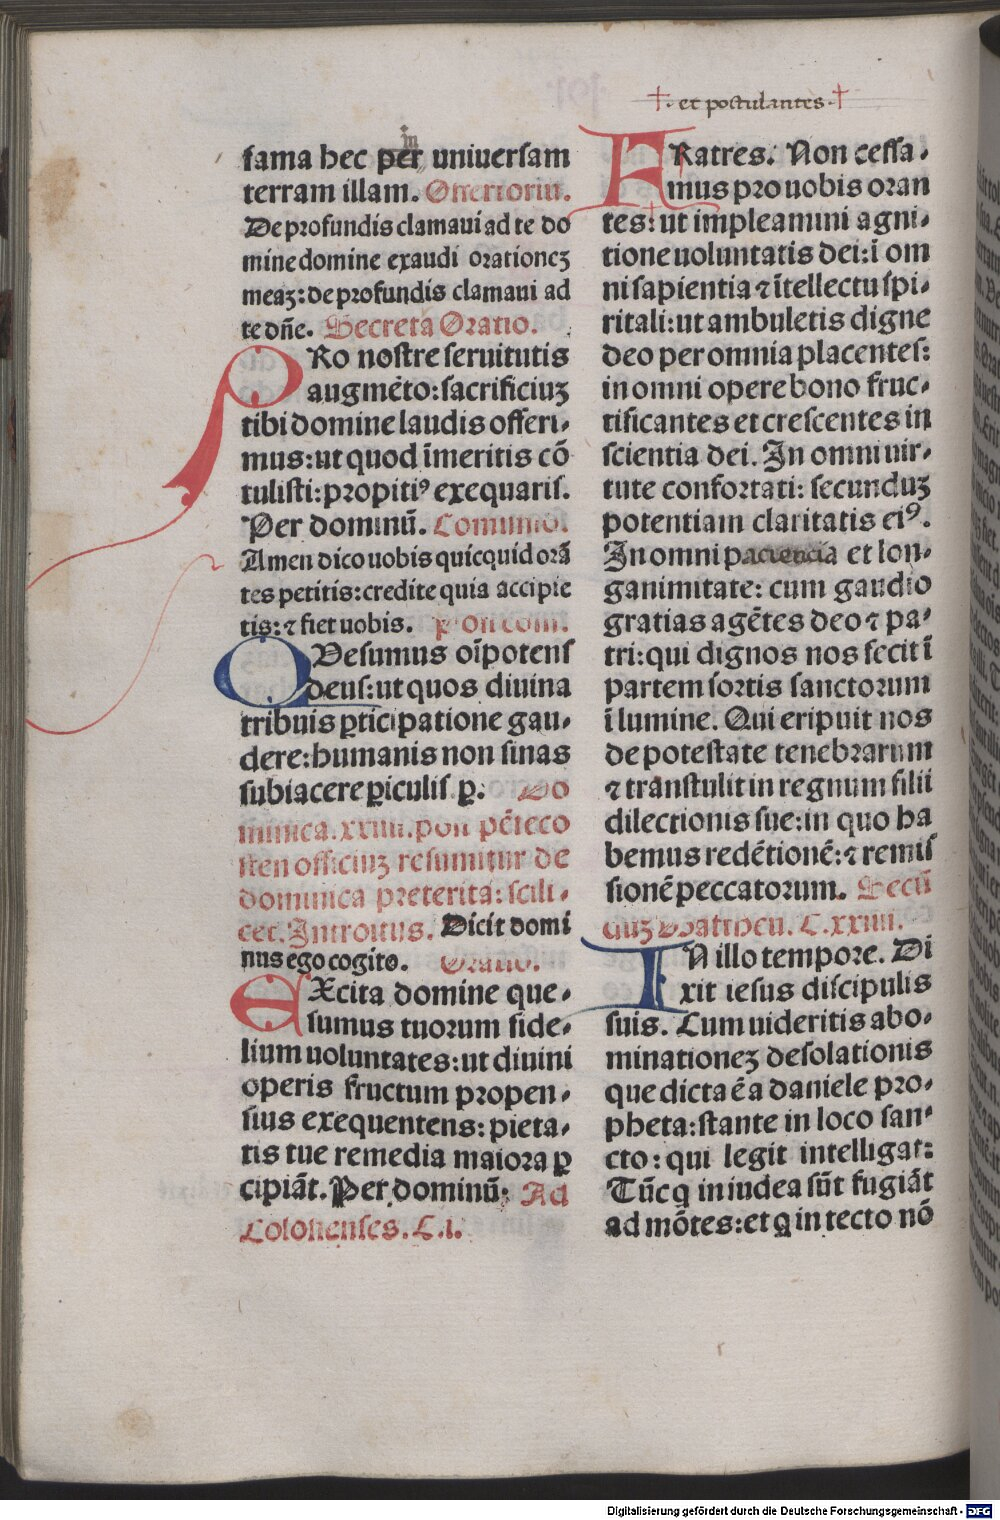 ✝· et postulantes ·✝
in
fama hec per uniuersam
terram illam. Offertoriu.
De profundis clamaui ad te do
mine domine exaudi orationeʒ
meaʒ: de profundis clamaui ad
te dñe. Secreta Oratio.
PRo nostre seruitutis
augmẽto: sacrificiuʒ
tibi domine laudis offeri⸗
mus: ut quod ĩmeritis cõ
tulisti: propitiꝰ exequaris.
Per dominũ. Comunio.
Amen dico uobis quicquid orã
tes petitis: credite quia accipie
tis: ⁊ fiet uobis. Post com.
QVesumus oĩpotens
deus: ut quos diuina
tribuis ꝑticipatione gau⸗
dere: humanis non sinas
subiacere ꝑiculis ꝑ. Do
minica. xxiiii. post pẽteco
sten officiuʒ resumitur de
dominica preterita: scili⸗
cet. Introitus. Dicit domi
nus ego cogito. Oratio.
EXcita domine que⸗
sumus tuorum fide⸗
lium uoluntates: ut diuini
operis fructum propen⸗
sius exequentens: pieta⸗
tis tue remedia maiora ꝑ
cipiãt. Per dominũ: Ad
Colosenses. C. i.
FRatres. Non cessa⸗
mus pro uobis oran
tes:✝ ut impleamini agni⸗
tione uoluntatis dei: ĩ om
ni sapientia ⁊ ĩtellectu spi⸗
ritali: ut ambuletis digne
deo per omnia placentes:
in omni opere bono fruc⸗
tificantes et crescentes in
scientia dei. In omni uir⸗
tute confortati: secunduʒ
potentiam claritatis eiꝰ.
In omni paciencia et lon⸗
ganimitate: cum gaudio
gratias agẽtes deo ⁊ pa⸗
tri: qui dignos nos fecit ĩ
partem sortis sanctorum
ĩ lumine. Qui eripuit nos
de potestate tenebrarum
⁊ transtulit in regnum filii
dilectionis sue: in quo ha
bemus redẽtionẽ: ⁊ remis
sionẽ peccatorum. Secũ
duʒ Mattheu. C. xxiiii.
IN illo tempore. Di
xit iesus discipulis
suis. Cum uideritis abo⸗
minationeʒ desolationis
que dicta ẽ a daniele pro⸗
pheta: stante in loco san⸗
cto: qui legit intelligat:
Tũc q in iudea sũt fugiãt
ad mõtes: et q in tecto nõ
Digitalisierung gefördert durch die Deutsche Forschungsgemeinschaft - DFG